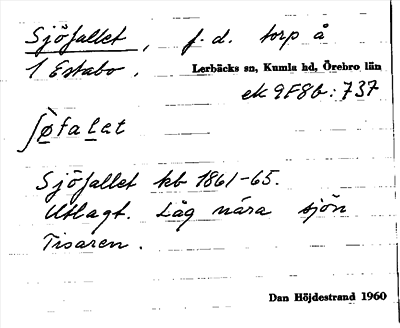 Sjöfallet, f.d. torp å
1 Estabo. Lerbäcks sn, Kumla hd, Örebro län
ek 9F8b:737
ʃø̀falat
Sjöfallet kb 1861-65.
Utlagt. Låg nära sjön
Tisaren.
Dan Höjdestrand 1960